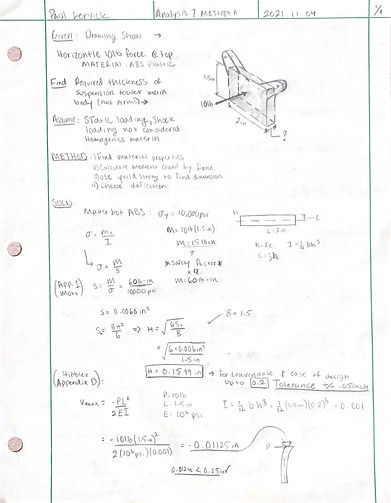 Paul Lervick Analysis 7 MET489A 2021 11 04 1/2
Given: Drawing Show →
Horizontle 10lb force @ top
MATERIAL: ABS Plastic
1.5in
10lb
2in
?
Find Required thickness of
suspension tower main
body (not arms) →
Assume: Static loading, shock
loading not considered
Homogenios material
METHOD: 1) Find material properties
2) Calculate moment caused by force
3) Use yeild streng to find dimension
4) Check deflection
SOLN:
Maker bot ABS: σy = 10,000psi
h C
b=2in
σ = Mc/I M=10lb(1.5in)
M=15lbin
h=2c I=1/12bh³
C=1/2h
↳ σ = M/S *Safety Factor*
× 4
(App. 1 Mott) S = M/σ = 60lb-in/10000psi M=60lb-in
S = 0.0060in³
S = BH²/6 ⇒ H = √6S/B B=1.5
= √6*0.006in³/1.5in
H = 0.1549in → for convenience & case of design
up to 0.2 Tolerance +/- .05inch
(Hibbler Appendix D):
Vmax = -PL²/2EI
P=10lb
L=1.5in
E=10⁶psi
I = 1/12bh³ = 1/12(1.5in)(0.2)³ = 0.001
= -10lb(1.5in)²/2(10⁶psi)(0.001) = -0.01125in
P
0.012in < 0.05in